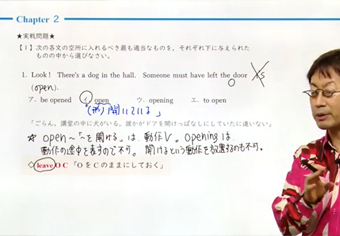 Chapter 2
★実戦問題★
【1】次の各文の空所に入れるべき最も適当なものを、それぞれ下に与えられた
ものの中から選びなさい。
1. Look! There's a dog in the hall. Someone must have left the door
(open).
ア. be opened イ. open ウ. opening エ. to open
(形) 開いている
「ごらん。講堂の中に犬がいる。誰かがドアを開けっぱなしにしていたに違いない」
☆ open〜「〜を開ける」は 動作V。openingは
動作の途中を表すので不可。開けるという動作を放置するのも不可。
◇ leave O C「OをCのままにしておく」